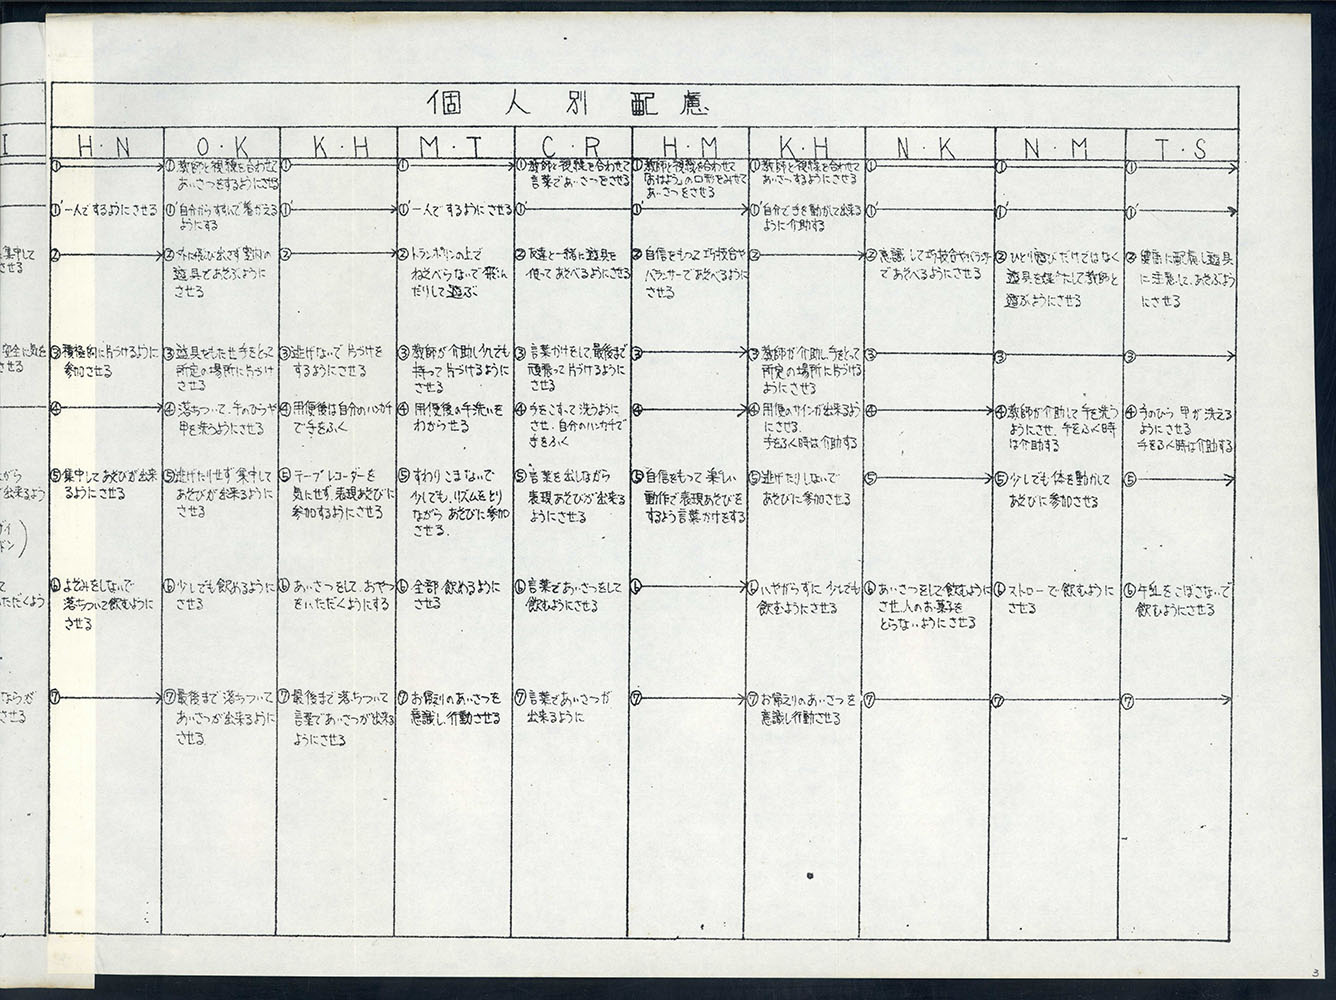 個人別配慮
I
H・N
O・K
K・H
M・T
C・R
H・M
K・H
N・K
N・M
T・S
集中して
させる
安全に気を
させる
がら
出来るよう
て
ただくよう
ようが
させる
①
①'一人でするようにさせる
②
③積極的に片づけるように
参加させる
④
⑤集中してあそびが出来
るようにさせる
⑥よそみをしないで
落ちついて飲むように
させる
⑦
①教師と視線を合わせて
あいさつをするようにさせる
①'自分からすすんで着がえる
ようにする
②外に飛び出さず室内の
遊具であそぶように
させる
③遊具をもたせ手をとって
所定の場所に片づけ
させる
④落ちついて、手のひらや
甲を洗うようにさせる
⑤逃げたりせず集中して
あそびが出来るように
させる
⑥少しでも飲めるように
させる
⑦最後まで落ちついて
あいさつが出来るように
させる
①
①'
②
③逃げないで片づけを
するようにさせる
④用便後は自分のハンカチ
で手をふく
⑤テープレコーダーを
気にせず、表現あそびに
参加するようにさせる
⑥あいさつをして、おやつ
をいただくようにする
⑦最後まで落ちついて
言葉であいさつが出来る
ようにさせる
①
①'一人でするようにさせる
②トランポリンの上で
ねそべらないで飛んだ
だりして遊ぶ
③教師が介助し少しでも
持って片づけるように
させる
④用便後の手洗いを
わからせる
⑤すわりこまないで
少しでも、リズムをとり
ながらあそびに参加
させる.
⑥全部飲めるように
させる
⑦お帰えりのあいさつを
意識し、行動させる
①教師と視線を合わせて
言葉であいさつをさせる
①'
②友達と一緒に遊具を
使ってあそべるようにさせる
③言葉かけをして最後まで
頑張って片づけるように
させる
④手をこすって洗うように
させ、自分のハンカチで
手をふく
⑤言葉を出しながら
表現あそびが出来る
ようにさせる
⑥言葉であいさつをして
飲むようにさせる
⑦言葉であいさつが
出来るように
①教師と視線を合わせて
「おはよう」の口形をみせて
あいさつをさせる
①'
②自信をもって巧技台や
バランサーであそべるように
させる
③
④
⑤自信をもって楽しい
動作で表現あそびを
するよう言葉かけをする
⑥
⑦
①教師と視線を合わせて
あいさつするようにさせる
①'自分で手を動かして出来る
ように介助する
②
③教師が介助し、手をとって
所定の場所に片づける
ようにさせる
④用便のサインが出来るよう
にさせる.
手をふく時は介助する
⑤逃げたりしないで
あそびに参加させる
⑥いやがらずに少しでも
飲むようにさせる
⑦お帰えりのあいさつを
意識し行動させる
①
①'
②意識して巧技台やバランサー
であそべるようにさせる
③
④
⑤
⑥あいさつをして飲むように
させ、人のお菓子を
とらないようにさせる
⑦
①
①'
②ひとり遊びだけではなく
遊具を媒介として教師と
遊ぶようにさせる
③
④教師が介助して手を洗う
ようにさせ、手をふく時
は介助する
⑤少しでも体を動かして
あそびに参加させる
⑥ストローで飲むように
させる
⑦
①
①'
②健康に配慮し遊具
に注意して、あそぶよう
にさせる
③
④手のひら甲が洗える
ようにさせる
手をふく時は介助する
⑤
⑥牛乳をこぼさないで
飲むようにさせる
⑦
3